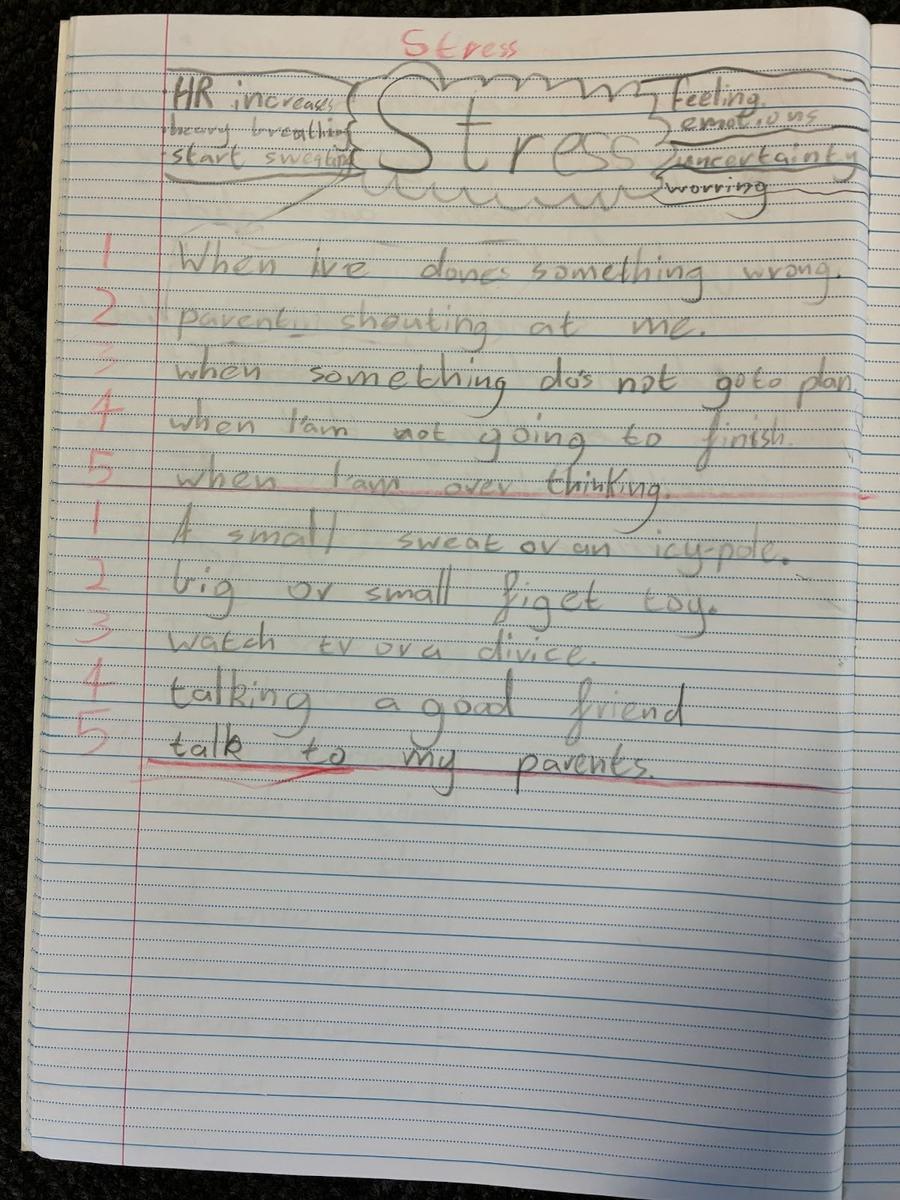 Stress
HR increases
heavy breathing
start sweating
Stress
feeling
emotions
uncertainty
worring
1 When ive dones something wrong.
2 parent shouting at me.
3 when something do's not go to plan.
4 when I'am not going to finish.
5 when I'am over thinking.
1 A small sweat or an icy-pole.
2 big or small figet toy.
3 watch tv or a divice.
4 talking a good friend
5 talk to my parents.